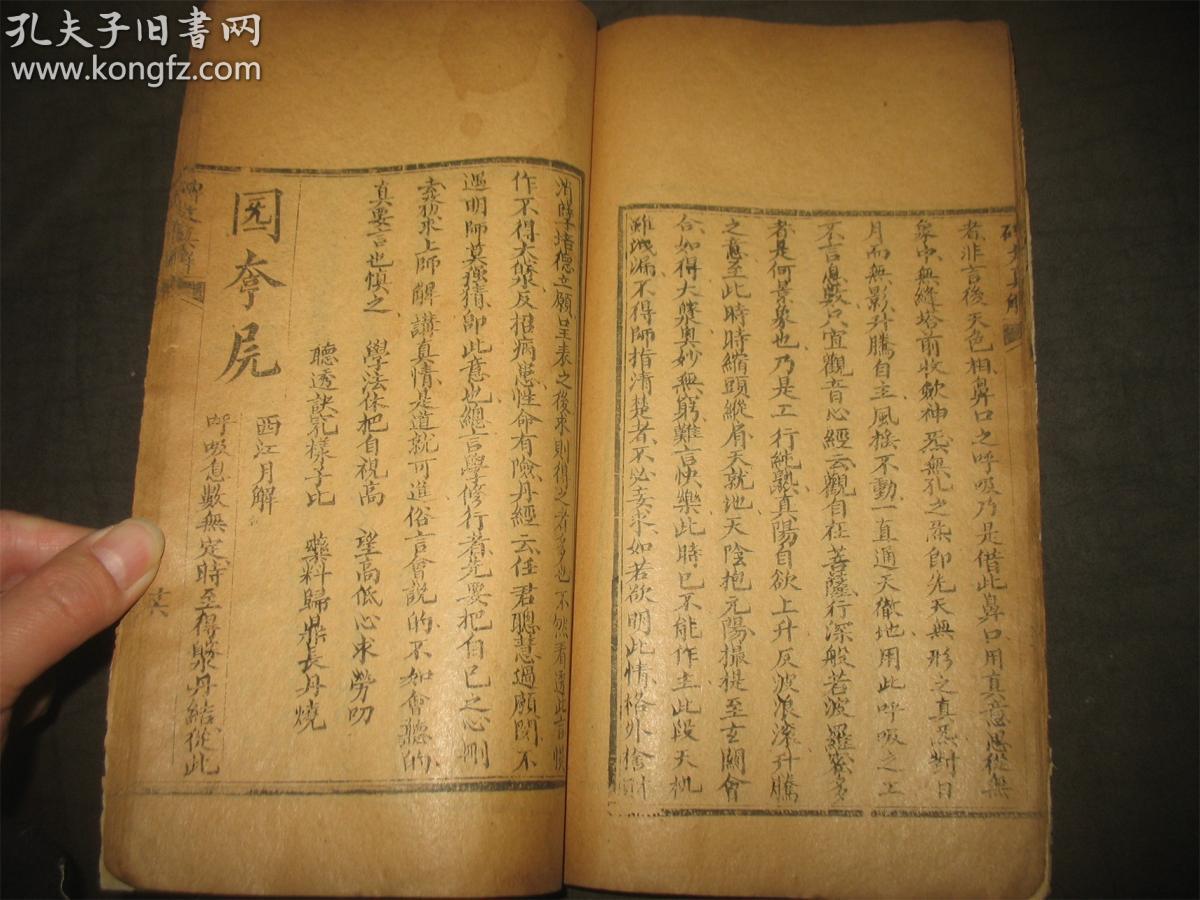 孔夫子旧书网
www.kongfz.com
者非言後天色相鼻口之呼吸乃是借此鼻口用真意思從無
象中無縫塔前收歛神炁無孔之 即先天無形之真炁對日
月而無影升騰自主風搖不動一直通天徹地用此呼吸之工
不言息數只宜觀音心經云觀自在菩薩行深般若波羅蜜多
者是何景象也乃是工行純熟真陽自欲上升反波浪滚升騰
之意至此時時縮頭縱肩天就地天陰抱元陽撮提至玄關會
合如得大藥奥妙無窮難言快樂此時已不能作主此段天机
雖洩漏不得師指清楚者不必妄求如若欲明此情格外
德立願呈表之後求則得之者多也不然看透此言
作不得大藥反招病患性命有險丹經云任君聰慧過顔閔不
遇明師莫强猜即此意也總言學修行者先要把自已之心刪
求上師醒講真情是道就可進俗言會說的不如會聽的
真要言也慎之 學法休把自視高 望高低心求勞叨
聽透訣兒樣子比 藥料歸鼎長丹燒
西江月解
呼吸息數無定時至得藥丹結從此